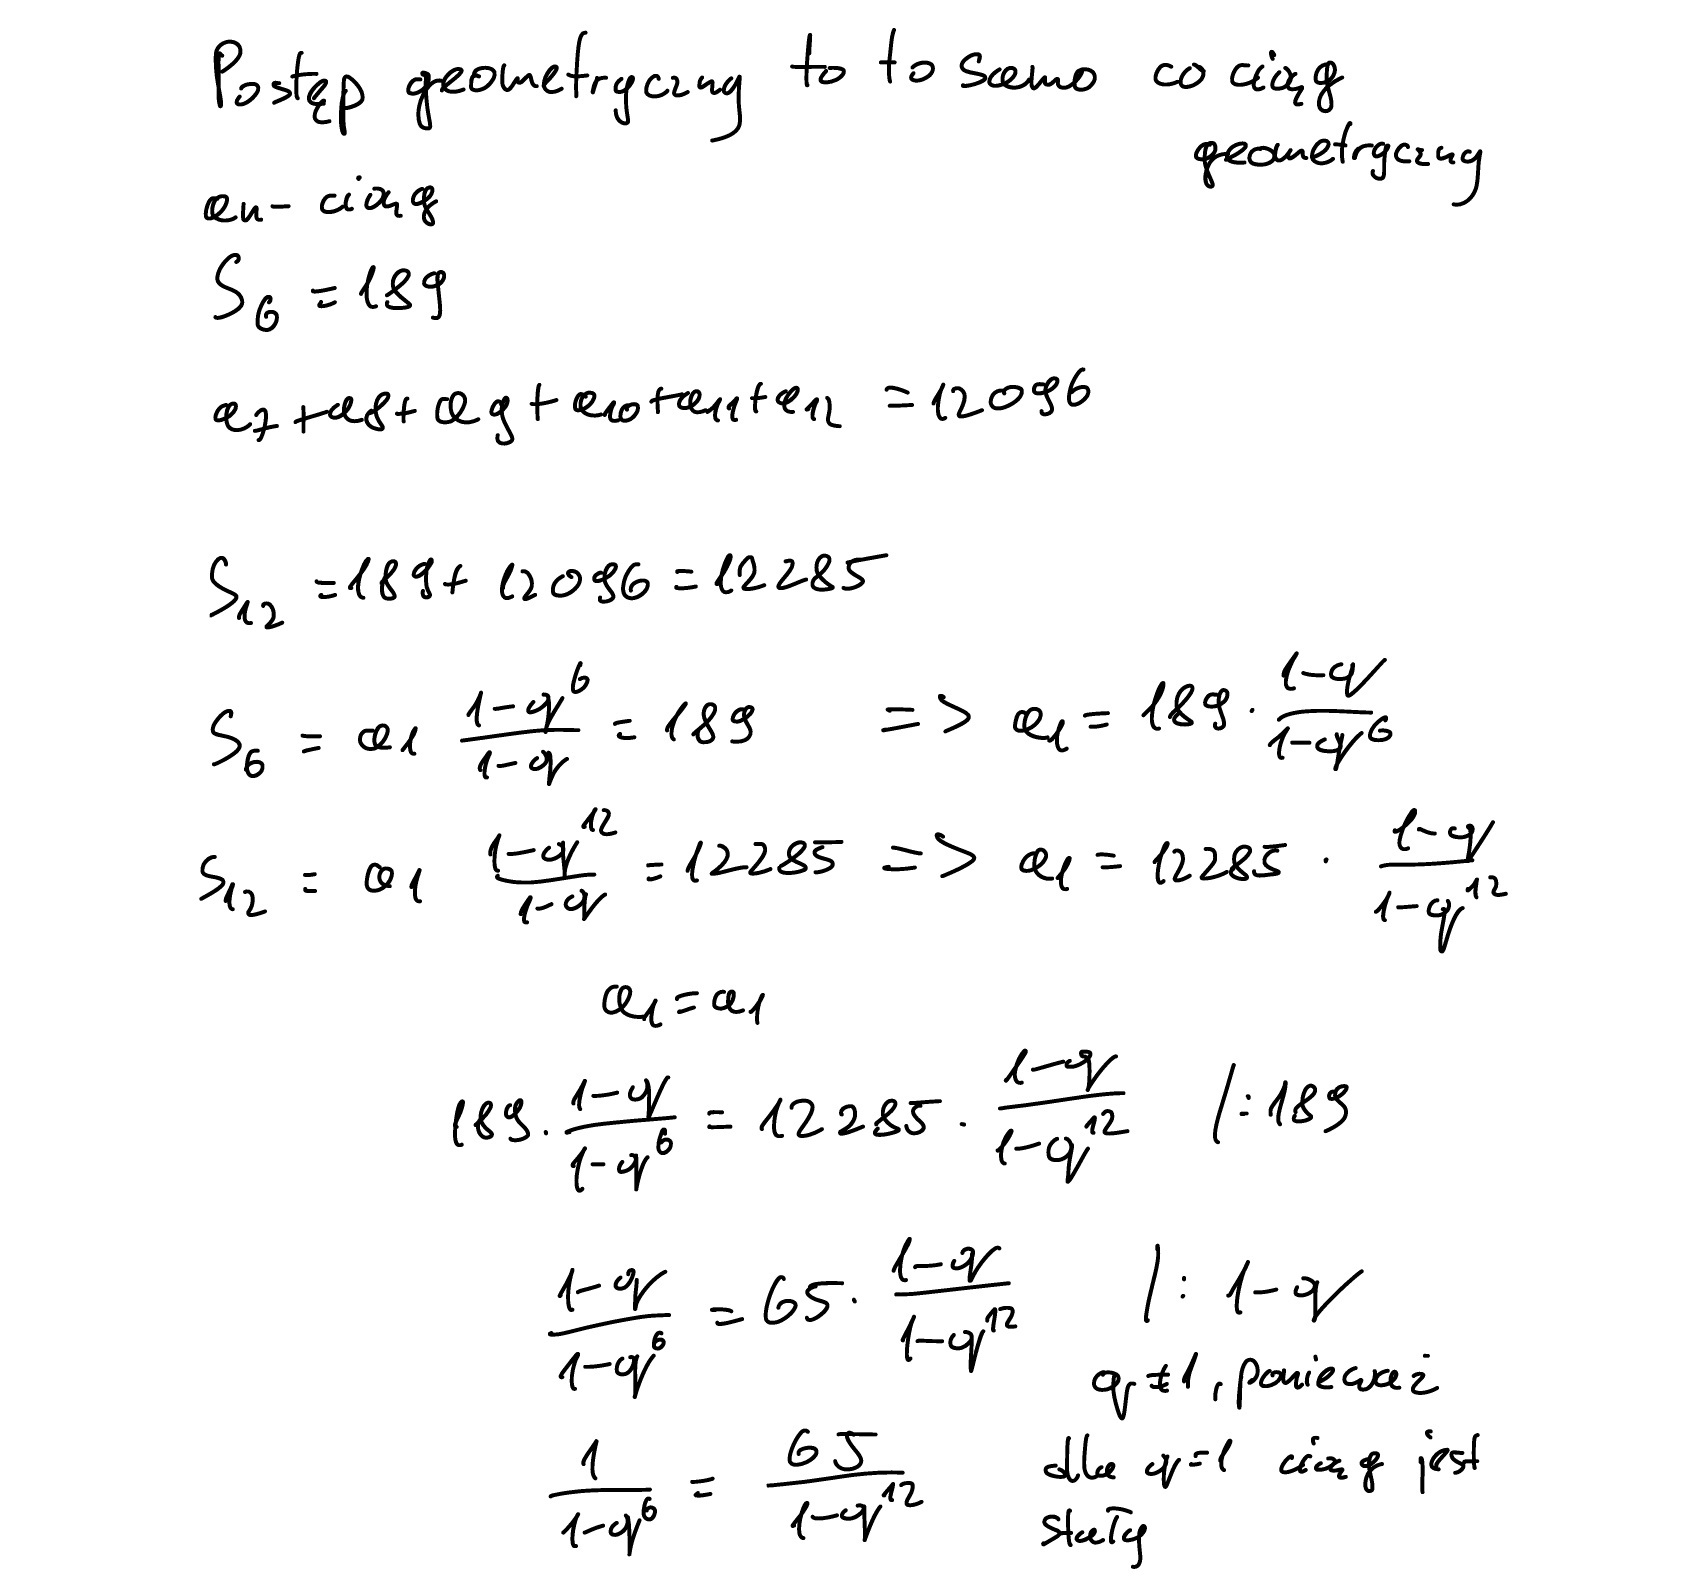 Postęp geometryczny to to samo co ciąg
geometryczny
an- ciąg
S₆ = 189
a₇+a₈+a₉+a₁₀+a₁₁+a₁₂ = 12096
S₁₂ = 189+ 12096 = 12285
S₆ = a₁ (1-q⁶)/(1-q) = 189 => a₁ = 189 · (1-q)/(1-q⁶)
S₁₂ = a₁ (1-q¹²)/(1-q) = 12285 => a₁ = 12285 · (1-q)/(1-q¹²)
a₁ = a₁
189 · (1-q)/(1-q⁶) = 12285 · (1-q)/(1-q¹²) /:189
(1-q)/(1-q⁶) = 65 · (1-q)/(1-q¹²) /: 1-q
q ≠ 1, ponieważ
1/(1-q⁶) = 65/(1-q¹²) dla q=1 ciąg jest
stały